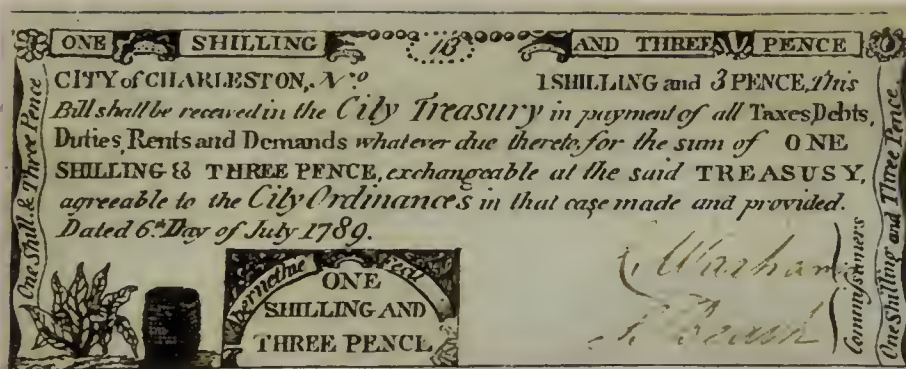 ONE SHILLING 1/3 AND THREE PENCE
CITY of CHARLESTON, No. 1 SHILLING and 3 PENCE, This
Bill shall be received in the City Treasury in payment of all Taxes, Debts,
Duties, Rents and Demands whatever due thereto, for the sum of ONE
SHILLING & THREE PENCE, exchangeable at the said TREASUSY,
agreeable to the City Ordinances in that case made and provided.
Dated 6.th Day of July 1789.
Abernethie fecit
ONE
SHILLING AND
THREE PENCE
Commissioners
One Shill. & Three Pence
One Shilling and Three Pence